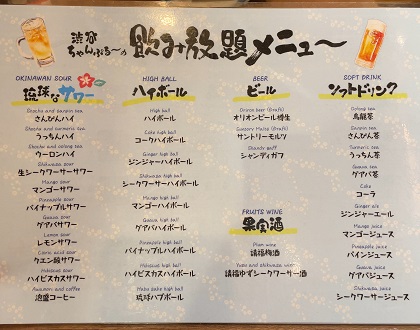 渋谷
ちゃんぷるーの
飲み放題メニュー
OKINAWAN SOUR
琉球なサワー
Shochu and sanpin tea
さんぴんハイ
Shochu and turmeric tea
うっちんハイ
Shochu and oolong tea
ウーロンハイ
Shikuwasa sour
生シークワーサーサワー
Mango sour
マンゴーサワー
Pineapple sour
パイナップルサワー
Guava sour
グアバサワー
Lemon sour
レモンサワー
Citric acid sour
クエン酸サワー
Hibiscus sour
ハイビスカスサワー
Awamori and coffee
泡盛コーヒー
HIGH BALL
ハイボール
High ball
ハイボール
Coke high ball
コークハイボール
Ginger high ball
ジンジャーハイボール
Shikuwasa high ball
シークワーサーハイボール
Mango high ball
マンゴーハイボール
Guava high ball
グアバハイボール
Pineapple high ball
パイナップルハイボール
Hibiscus high ball
ハイビスカスハイボール
Habu sake high ball
琉球ハブボール
BEER
ビール
Orion beer (draft)
オリオンビール樽生
Suntory Malts (draft)
サントリーモルツ
Shandy gaff
シャンディガフ
FRUITS WINE
果実酒
Plum wine
請福梅酒
Yuzu and shikuwasa wine
請福ゆずシークワーサー酒
SOFT DRINK
ソフトドリンク
Oolong tea
烏龍茶
Sanpin tea
さんぴん茶
Turmeric tea
うっちん茶
Guava tea
グアバ茶
Coke
コーラ
Ginger ale
ジンジャーエール
Mango juice
マンゴージュース
Pineapple juice
パインジュース
Guava juice
グアバジュース
Shikuwasa juice
シークワーサージュース